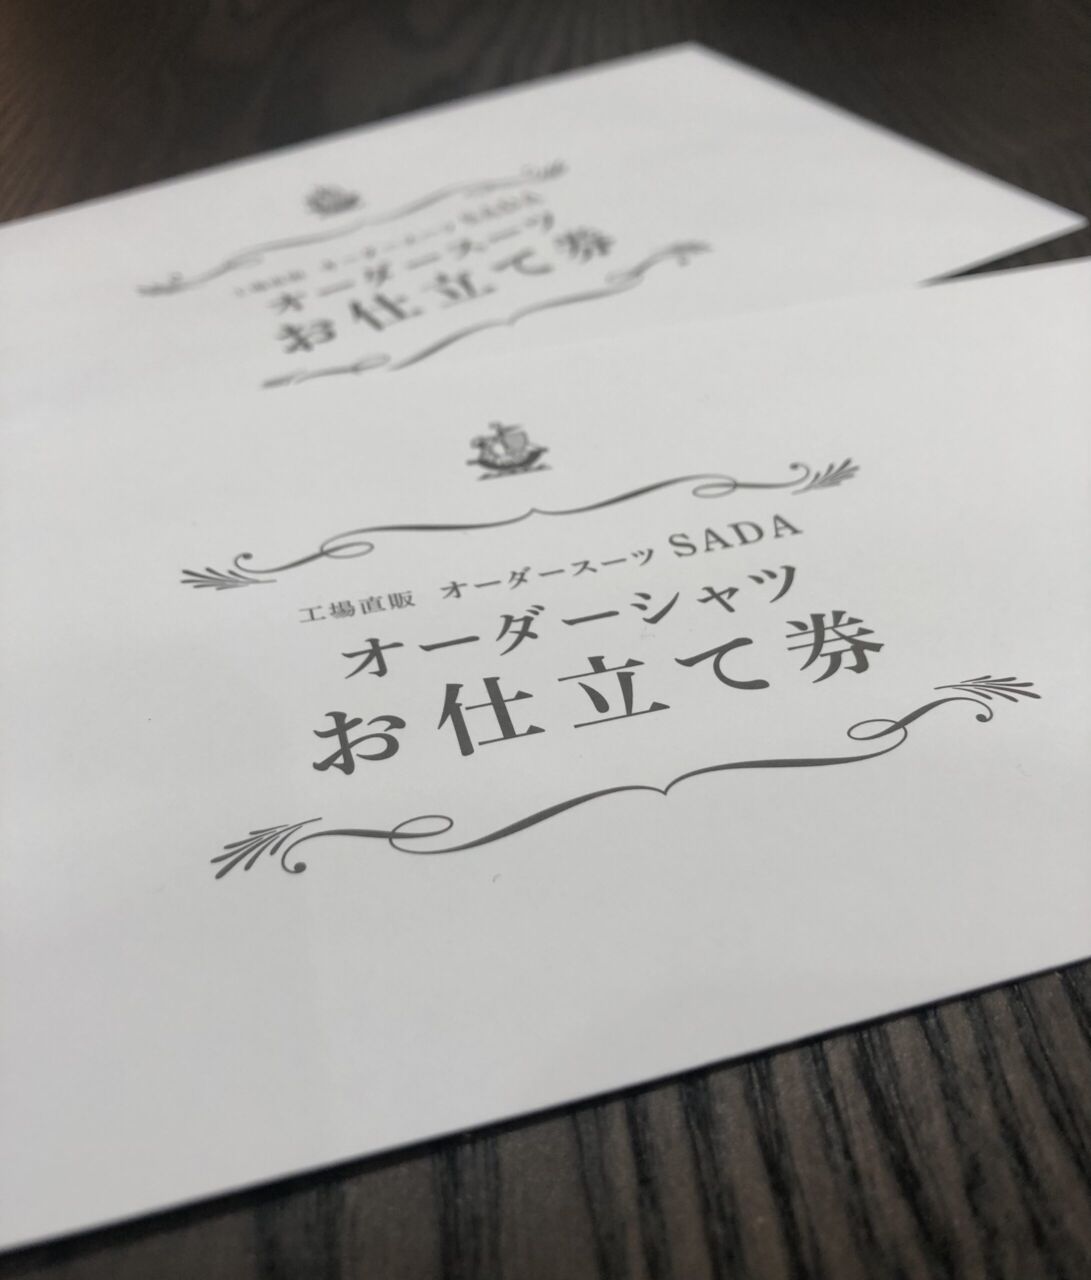 オーダースーツ SADA
オーダースーツ
お仕立て券
工場直販 オーダースーツ SADA
オーダーシャツ
お仕立て券